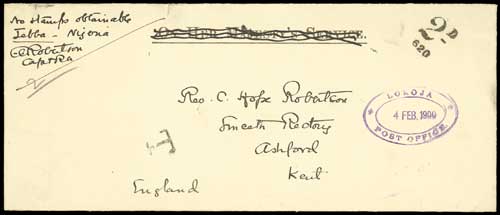 No stamps obtainable
Jebba - Nigeria
C. Robertson
Capt RA
ON HER MAJESTY'S SERVICE.
2D
620
Rev. C. Hope Robertson
Smeeth Rectory
Ashford
Kent
England
T
LOKOJA
4 FEB. 1900
POST OFFICE